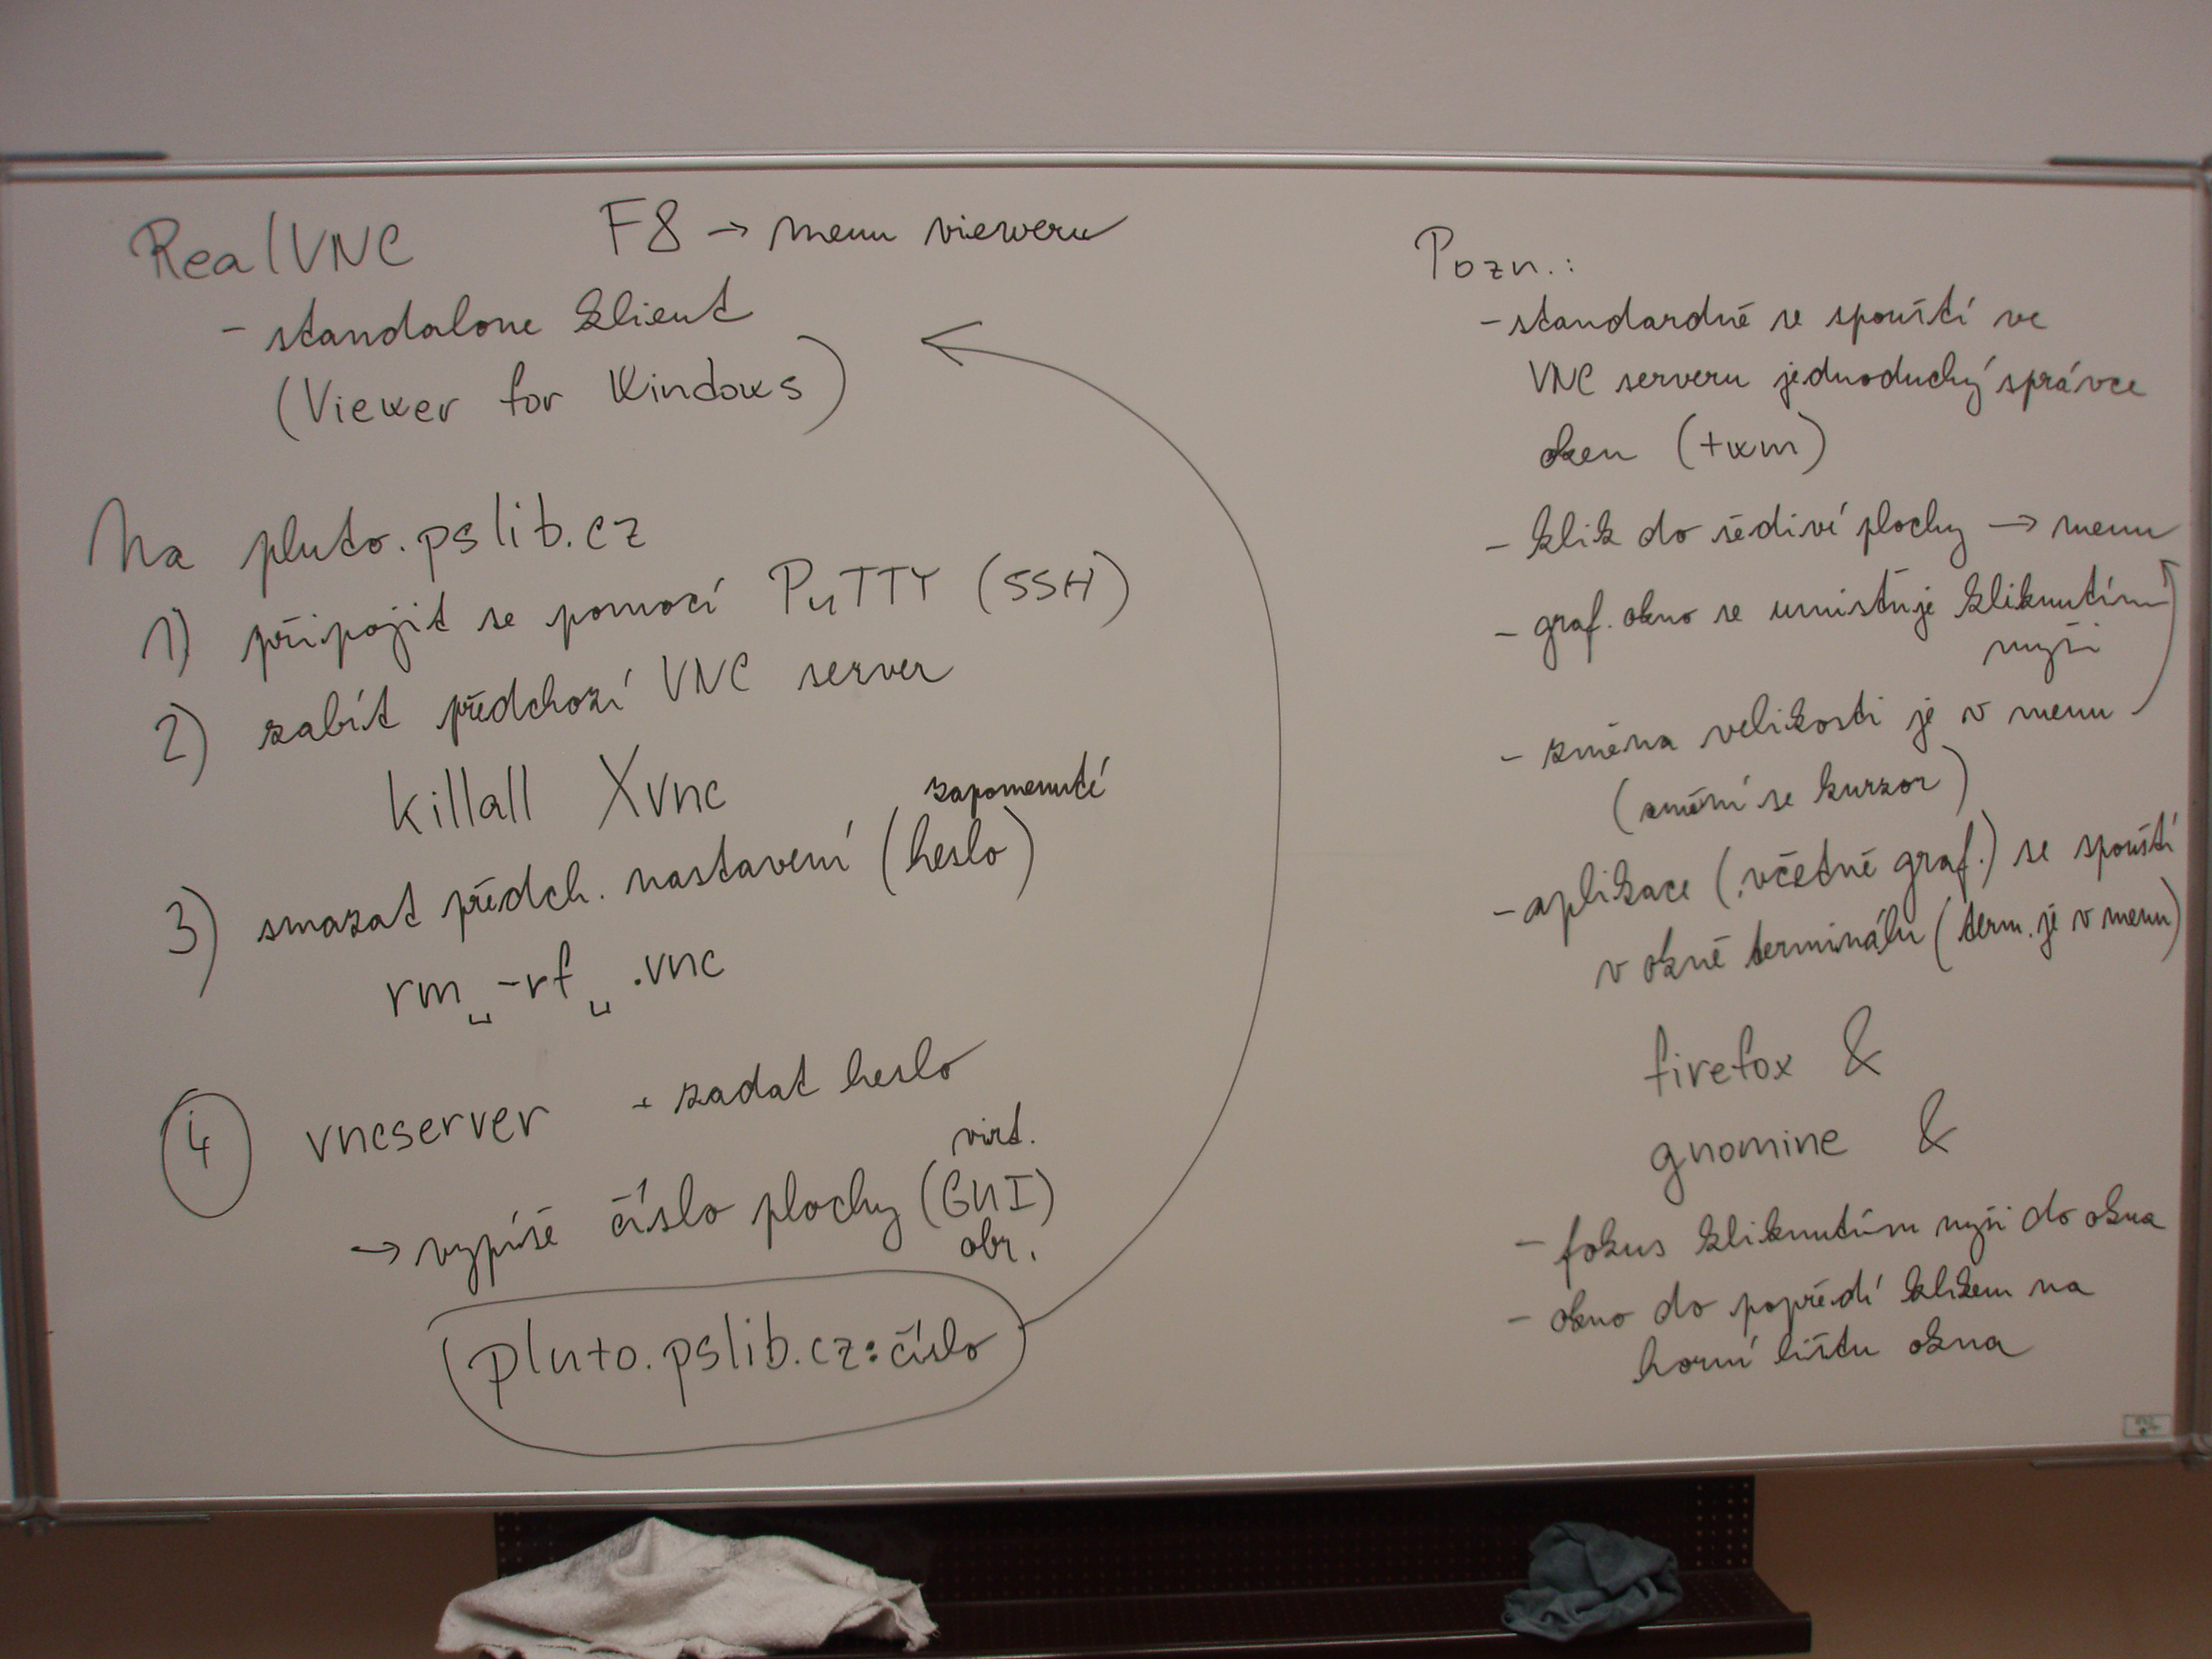 RealVNC
F8 → menu vieweru
- standalone klient
(Viewer for Windows)
Na pluto.pslib.cz
1) připojit se pomocí PuTTY (SSH)
2) zabít předchozí VNC server
killall Xvnc
zapomenuté
3) smazat předch. nastavení (heslo)
rm␣-rf␣.vnc
4 vncserver + zadat heslo
virt.
→ vypíše číslo plochy (GUI)
obr.
pluto.pslib.cz:číslo
Pozn.:
- standardně se spouští ve
VNC serveru jednoduchý správce
oken (twm)
- klik do šedivé plochy → menu
- graf. okno se umisťuje kliknutím
myši
- změna velikosti je v menu
(změní se kurzor)
- aplikace (včetně graf.) se spouští
v okně terminálu (term. je v menu)
firefox &
gnomine &
- fokus kliknutím myši do okna
- okno do popředí klikem na
horní lištu okna